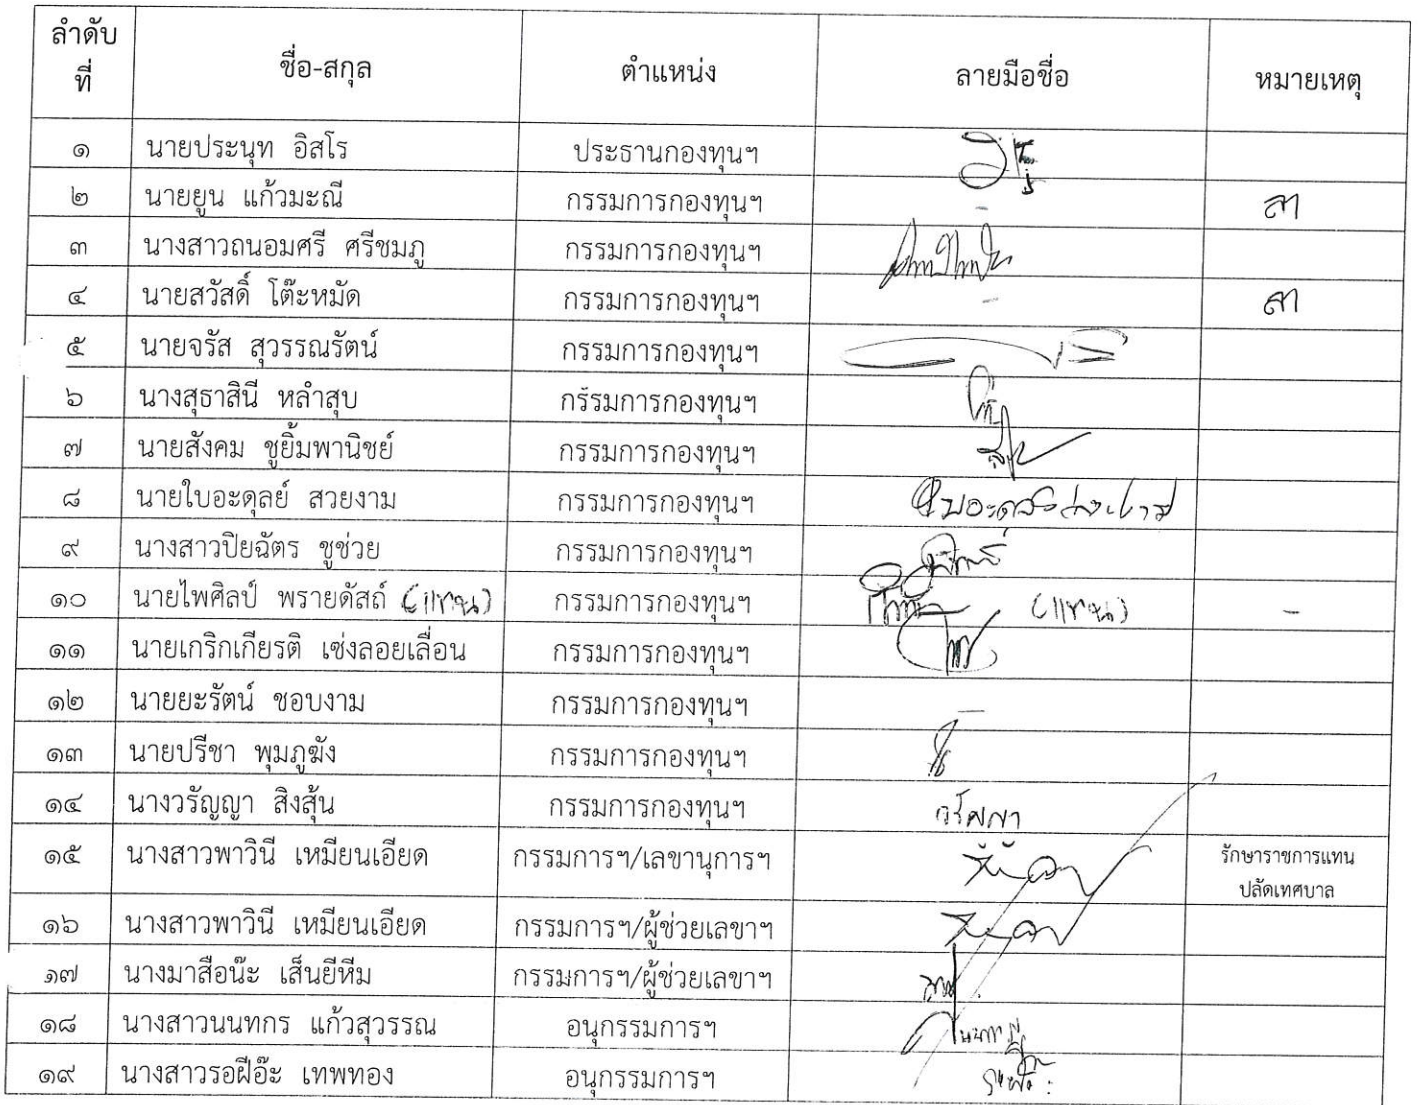 ลำดับ
ที่
ชื่อ-สกุล
ตำแหน่ง
ลายมือชื่อ
หมายเหตุ
๑ นายประนุท อิสโร ประธานกองทุนฯ
๒ นายยูน แก้วมะณี กรรมการกองทุนฯ - ลา
๓ นางสาวถนอมศรี ศรีชมภู กรรมการกองทุนฯ
๔ นายสวัสดิ์ โต๊ะหมัด กรรมการกองทุนฯ - ลา
๕ นายจรัส สุวรรณรัตน์ กรรมการกองทุนฯ
๖ นางสุธาสินี หลำสุบ กรรมการกองทุนฯ
๗ นายสังคม ชูยิ้มพานิชย์ กรรมการกองทุนฯ
๘ นายใบอะดุลย์ สวยงาม กรรมการกองทุนฯ
๙ นางสาวปิยฉัตร ชูช่วย กรรมการกองทุนฯ
๑๐ นายไพศิลป์ พรายดัสถ์ (แทน) กรรมการกองทุนฯ (แทน) -
๑๑ นายเกริกเกียรติ เซ่งลอยเลื่อน กรรมการกองทุนฯ
๑๒ นายยะรัตน์ ชอบงาม กรรมการกองทุนฯ -
๑๓ นายปรีชา พุมภูฆัง กรรมการกองทุนฯ
๑๔ นางวรัญญา สิงสุ้น กรรมการกองทุนฯ วรัญญา
๑๕ นางสาวพาวินี เหมียนเอียด กรรมการฯ/เลขานุการฯ รักษาราชการแทน
ปลัดเทศบาล
๑๖ นางสาวพาวินี เหมียนเอียด กรรมการฯ/ผู้ช่วยเลขาฯ
๑๗ นางมาสือน๊ะ เส็นยีหีม กรรมการฯ/ผู้ช่วยเลขาฯ
๑๘ นางสาวนนทกร แก้วสุวรรณ อนุกรรมการฯ
๑๙ นางสาวรอฝีอ๊ะ เทพทอง อนุกรรมการฯ